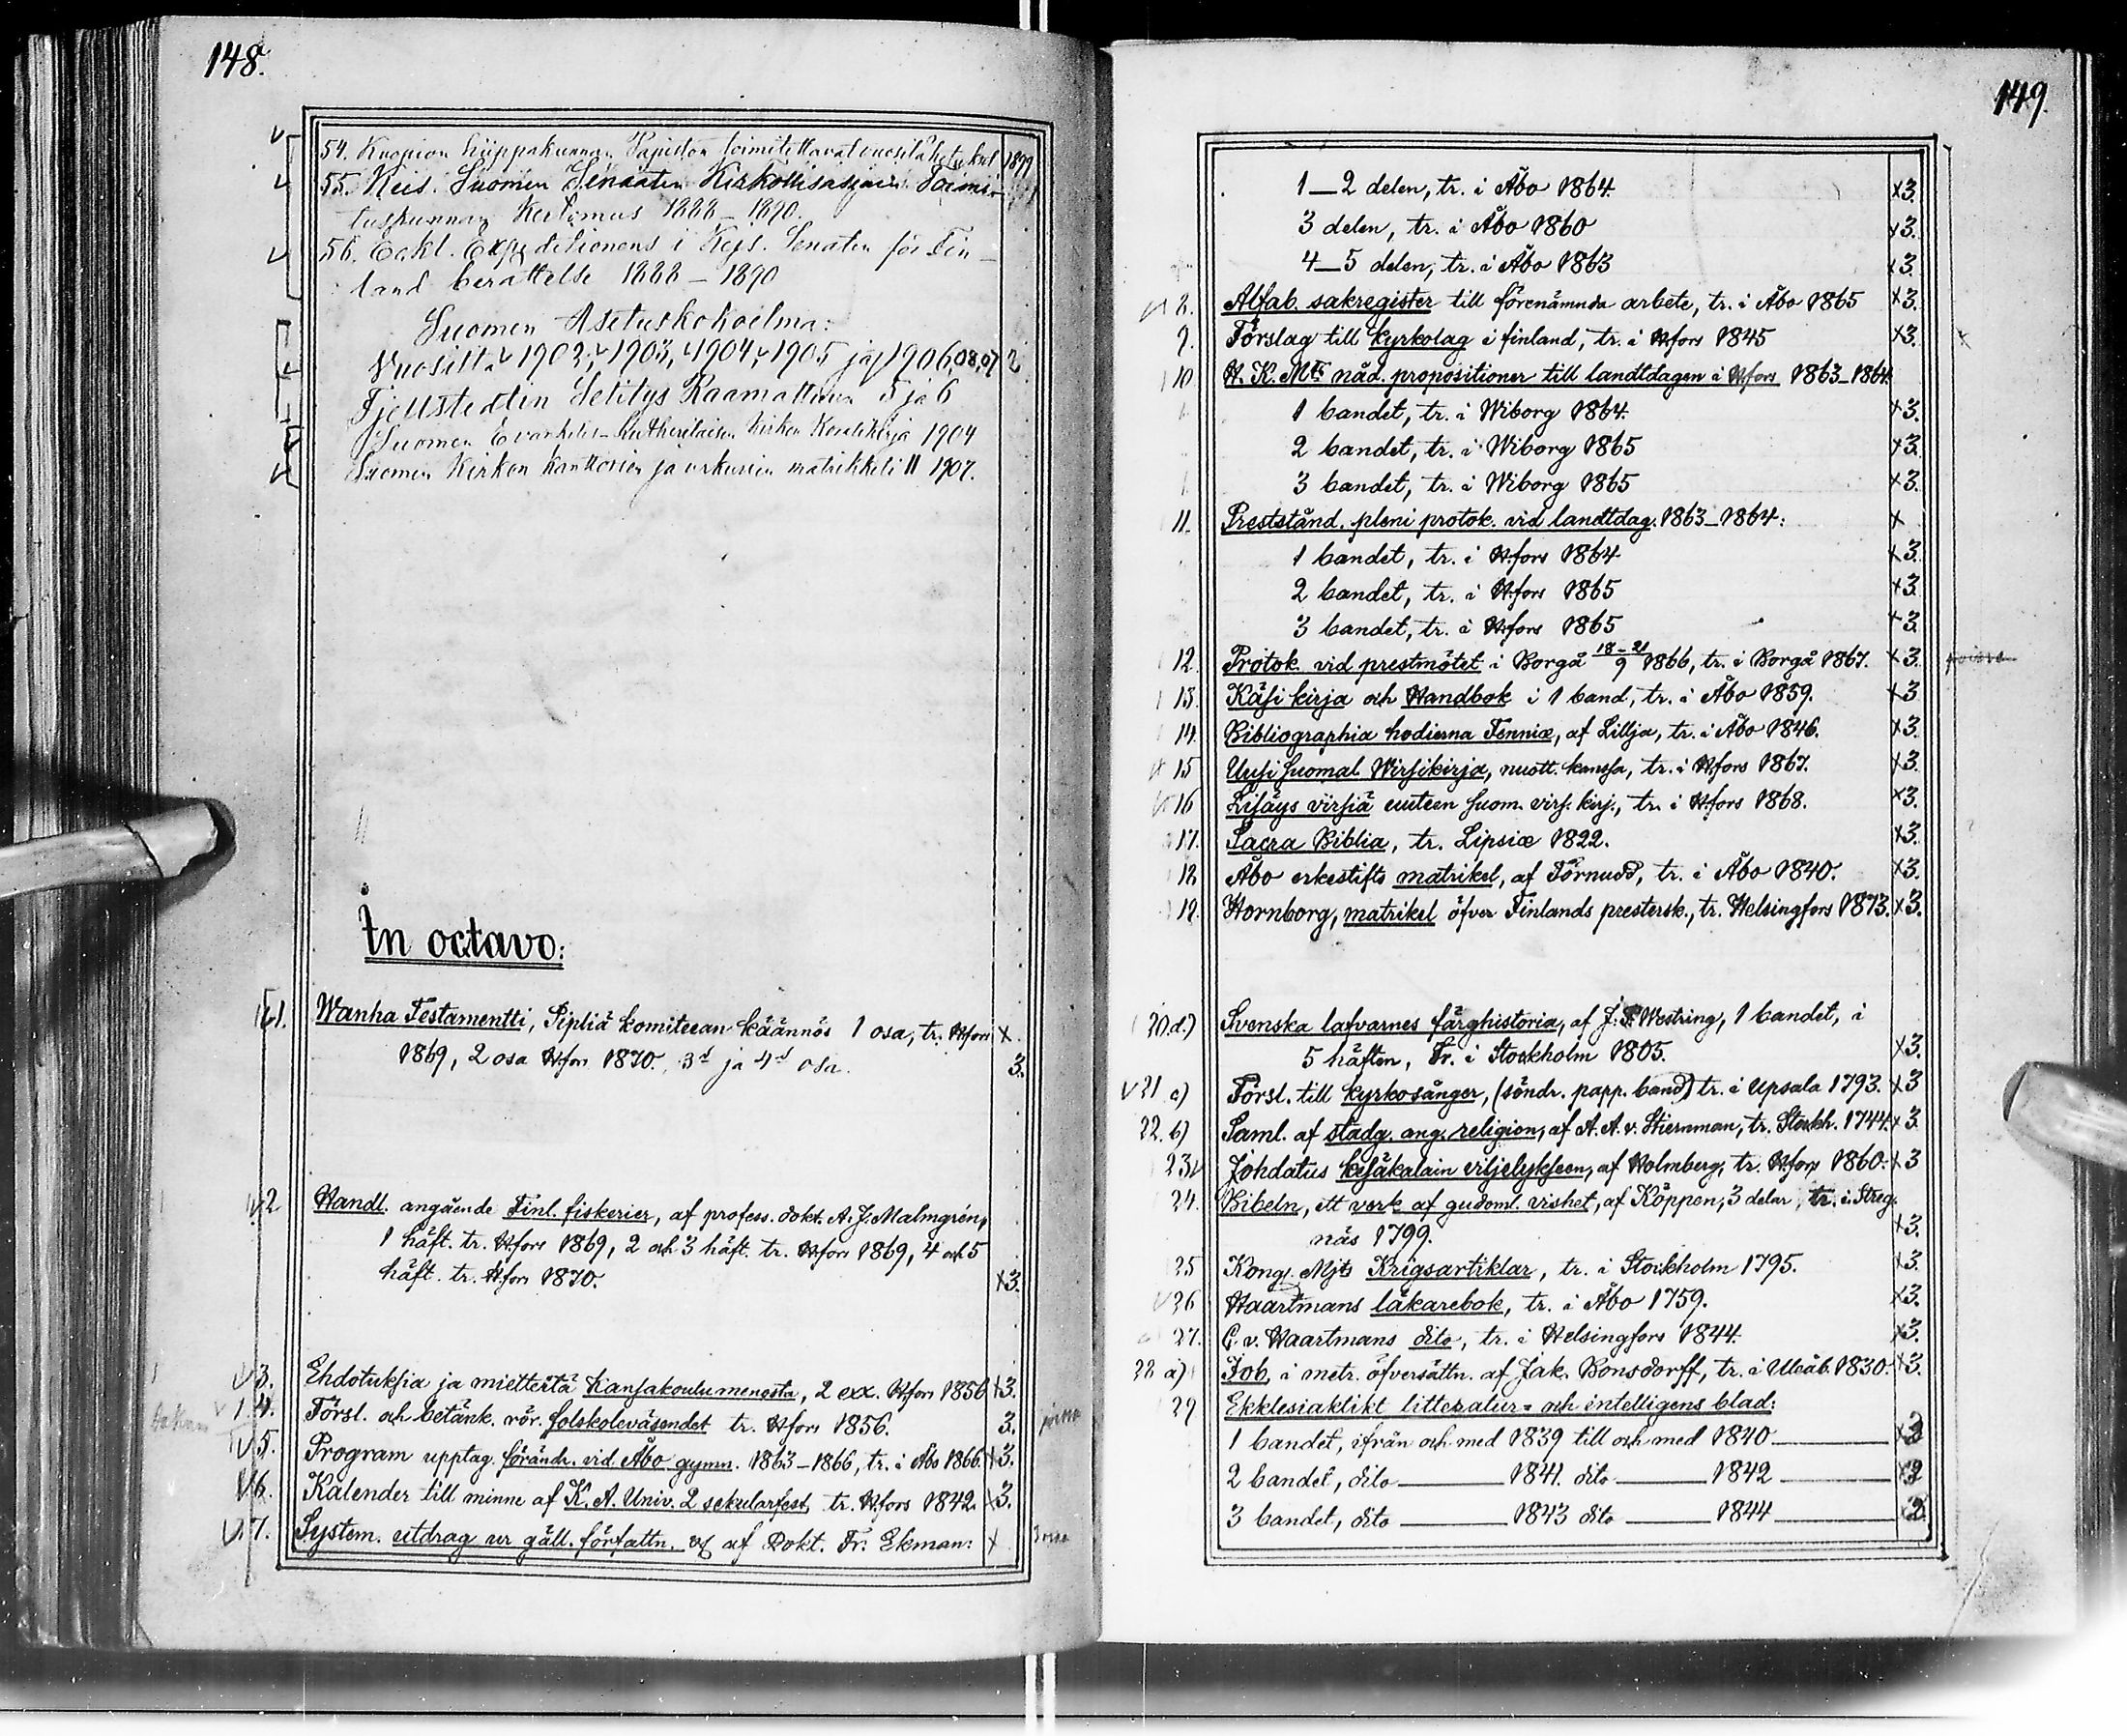 148.
54. Kuopion hiippakunnan Papiston toimitettavat vuosilähetykset 1899
55. Keis. Suomen Senaatin Kirkollisasiain Toimi-
tuskunnan Kertomus 1888–1890.
56. Eckl. Expeditionens i Kejs. Senaten för Fin-
land berättelse 1888–1890
Suomen Asetuskokoelma:
Vuosilta 1902, 1903, 1904, 1905 ja 1906, 08, 07 2
Fjellstedtin Selitys Raamattuun 5 ja 6
Suomen Evankelis-Lutherilaisen Kirkon Koralikirja 1904
Suomen Kirkon kanttorien ja urkurien matrikkeli II 1907.
In octavo:
1. Wanha Testamentti, Pipliä komitean käännös 1 osa, tr. Hfors x
1869, 2 osa Hfors 1870. 3d ja 4d osa. 3.
2 Handl. angående Finl. fiskerier, af profess. dokt. A. J. Malmgrén,
1 häft. tr. Hfors 1869, 2 och 3 häft. tr. Hfors 1869, 4 och 5
häft. tr. Hfors 1870. x3.
3. Ehdotuksia ja mietteitä Kansakoulumenosta, 2 exx. Hfors 1856 x3.
4. Försl. och betänk. rör. folskoleväsendet tr. Hfors 1856. 3.
5. Program upptag. förändr. vid Åbo gymn. 1863–1866, tr. i Åbo 1866. x3.
6. Kalender till minne af K. A. Univ. 2 sekularfest, tr. Hfors 1842. x3.
7. System. utdrag ur gäll. författn. af Dokt. Fr. Ekman: x
149.
1–2 delen, tr. i Åbo 1864. x3.
3 delen, tr. i Åbo 1860 x3.
4–5 delen, tr. i Åbo 1863 x3.
8. Alfab. sakregister till förenämnda arbete, tr. i Åbo 1865 x3.
9. Förslag till kyrkolag i finland, tr. i Hfors 1845 x3.
10 H. K. Mts nåd. propositioner till landtdagen i Hfors 1863–1864.
1 bandet, tr. i Wiborg 1864. x3.
2 bandet, tr. i Wiborg 1865 x3.
3 bandet, tr. i Wiborg 1865 x3.
11. Prestånd. pleni protok. vid landtdag. 1863–1864: x
1 bandet, tr. i Hfors 1864 x3.
2 bandet, tr. i Hfors 1865 x3.
3 bandet, tr. i Hfors 1865 x3.
12. Protok. vid prestmötet i Borgå 18–21/9 1866, tr. i Borgå 1867. x3. poissa
13. Käsi kirja och Handbok i 1 band, tr. i Åbo 1859. x3
14. Bibliographia hodierna Fenniæ, af Lillja, tr. i Åbo 1846. x3.
15 Uusi Suomal Wirsikirja, nuott. kanssa, tr. i Hfors 1867. x3.
16 Lisäys virsiä uuteen suom. virs. kirj., tr. i Hfors 1868. x3.
17. Sacra Biblia, tr. Lipsiæ 1822. x3.
18 Åbo erkestifts matrikel, af Törnudd, tr. i Åbo 1840. x3.
19. Hornborg, matrikel öfver Finlands prestersk., tr. Helsingfors 1873. x3.
20. d.) Svenska lafvarnes färghistoria, af J. P. Westring, 1 bandet, i
5 häften, Tr. i Stockholm 1805. x3.
21 c) Försl. till kyrkosånger, (söndr. papp. band) tr. i Upsala 1793. x3
22. b) Saml. af stadg. ang. religion, af A. A. v. Stiernman, tr. Stockh. 1744. x3.
23. Johdatus kesäkalain viljelykseen, af Holmberg, tr. Hfors 1860. x3
24. Bibeln, ett verk af gudoml. vishet, af Köppen, 3 delar, tr. i Streg-
näs 1799. x3.
25 Kongl. Mjts Krigsartiklar, tr. i Stockholm 1795. x3.
26 Haartmans läkarebok, tr. i Åbo 1759. x3.
27. C. v. Haartmans dito, tr. i Helsingfors 1844. x3.
28 a) Job, i metr. öfversättn. af Jak. Bonsdorff, tr. i Uleåb. 1830. x3.
29 Ekklesiaktikt litteratur- och intelligens blad:
1 bandet, ifrån och med 1839 till och med 1840 x3
2 bandet, dito 1841. dito 1842 x3
3 bandet, dito 1843 dito 1844 x3